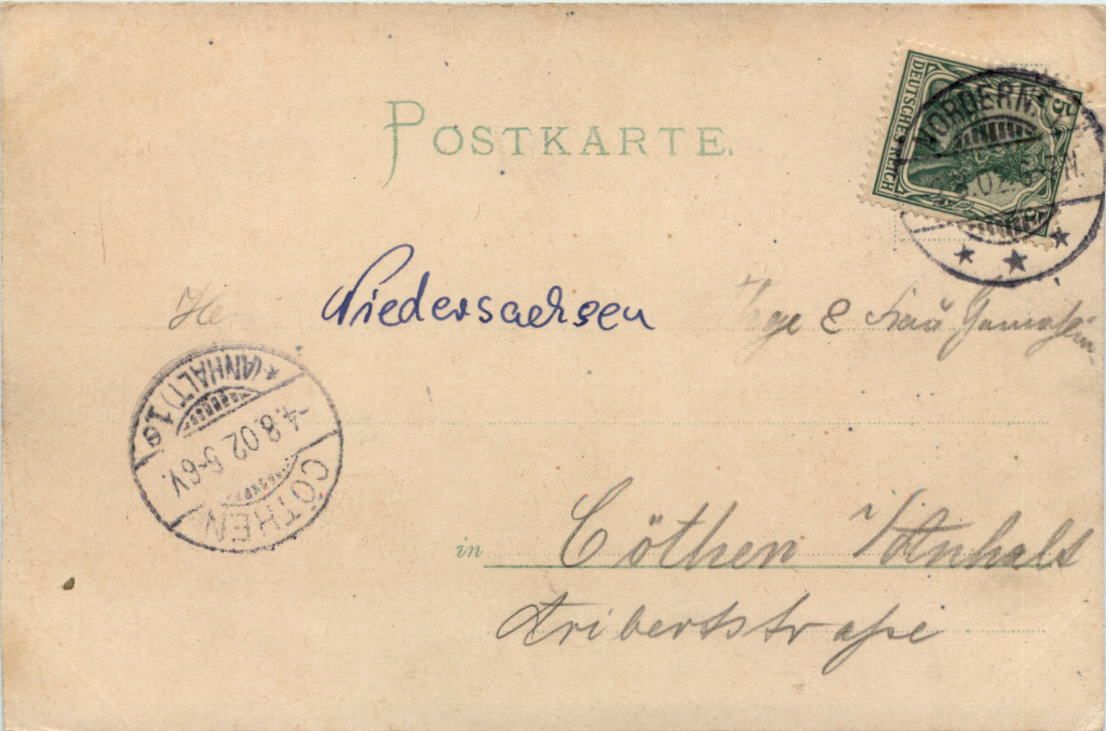 POSTKARTE.
5
DEUTSCHES REICH
NORDERN
02
Niedersachsen
& Frau
(ANHALT) 1
-4.8.02 5-6V.
CÖTHEN
in Cöthen i/Anhalt
Aribertstraße